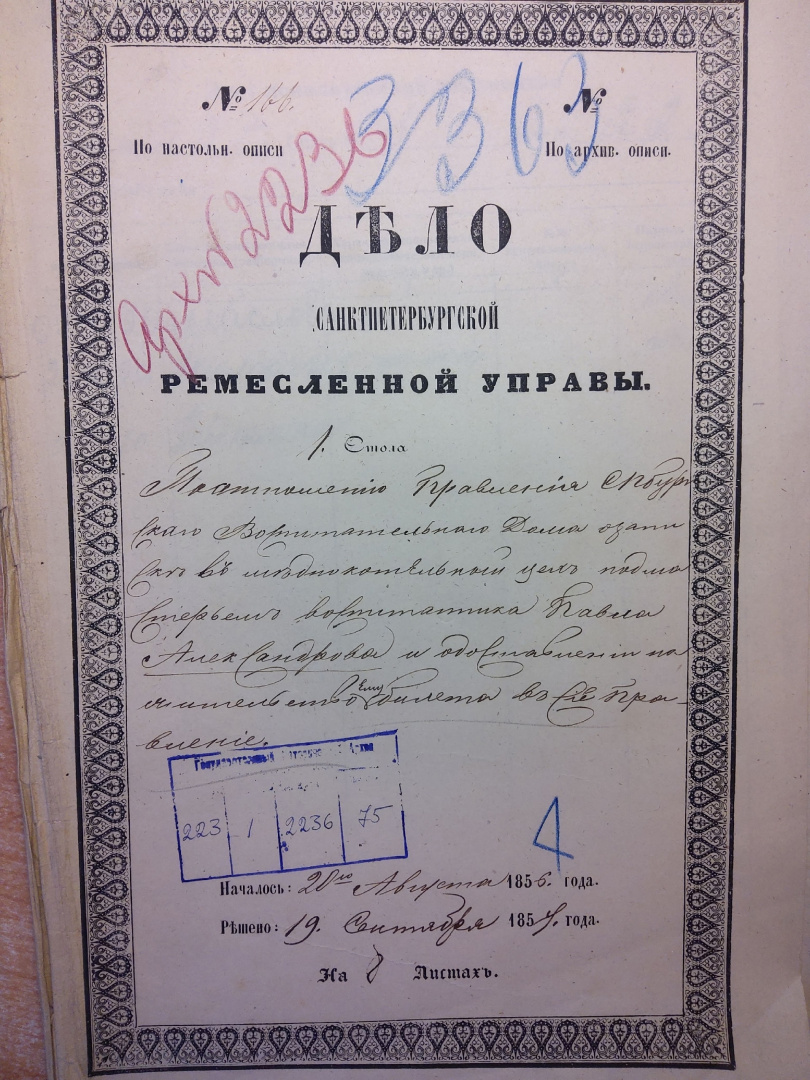 № 166. №
По настольн. описи По архив. описи.
3363
Арх № 2236
ДѢЛО
САНКТПЕТЕРБУРГСКОЙ
РЕМЕСЛЕННОЙ УПРАВЫ.
1. Стола
По отношенію Правленія СПбург
скаго Воспитательнаго Дома о запи
скѣ въ мѣднокотельный цехъ подма
стерьемъ воспитанника Павла
Александрова и о доставленіи на
жительство Ему билета въ Сіе Пра-
вленіе.
Государственный Архив
223 1 2236 75
4
Началось: 20го Августа 1856. года.
Рѣшено: 19. Сентября 185 года.
На 8 Листахъ.